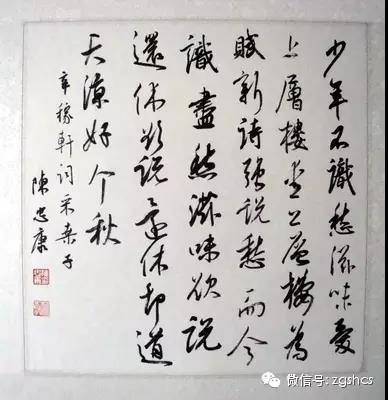 少年不識愁滋味愛
上層樓愛上層樓為
賦新詩強說愁而今
識盡愁滋味欲説
還休欲説還休却道
天涼好个秋
辛稼軒詞采桑子
陳忠康
微信号: zgshcs